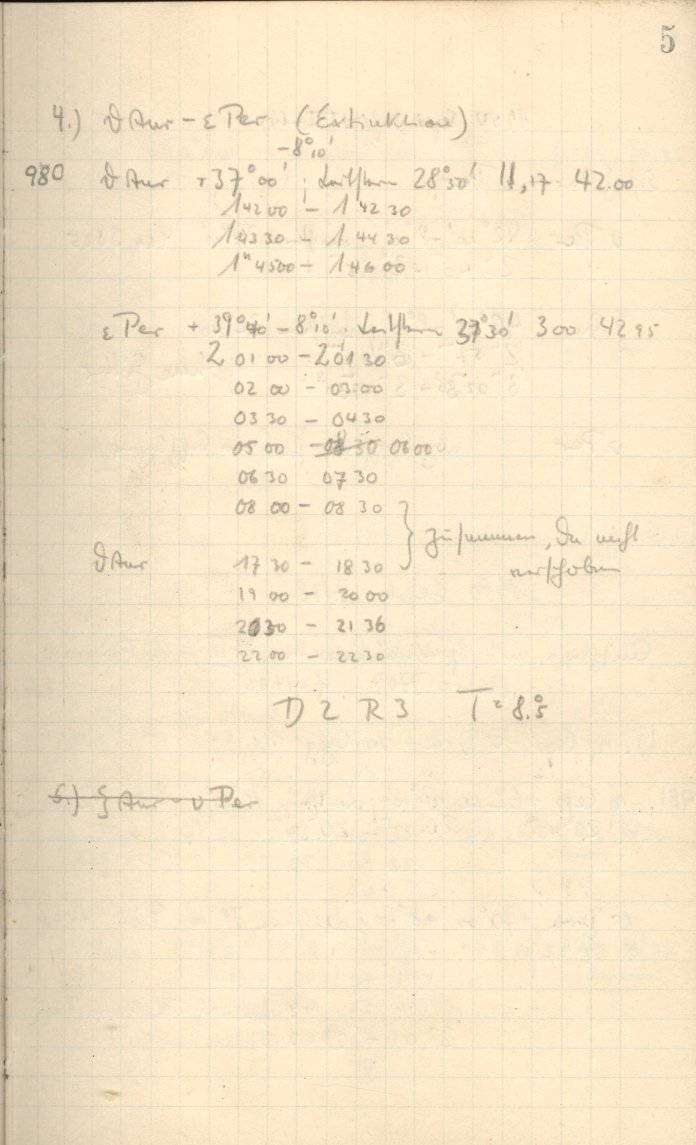 5
4.) ϑ Aur – ε Per (Extinktion)
–8°10'
980 ϑ Aur +37°00' ; Leitstern 28°50' 11,17 42.00
1 42 00 – 1 42 30
1 43 30 – 1 44 30
1h 45 00 – 1 46 00
ε Per + 39°40' – 8°10'. Leitstern 37°30' 3 00 42 95
2 01 00 – 2 01 30
02 00 – 03:00
03 30 – 04 30
05 00 – 06 00
06 30 07 30
08 00 – 08 30
zusammen, da nicht
ϑ Aur 17 30 – 18 30
verschoben
19 00 – 20 00
– 21 36
22 00 – 22 30
D 2 R 3 T = 8.°5
5.) ξ Aur – ν Per